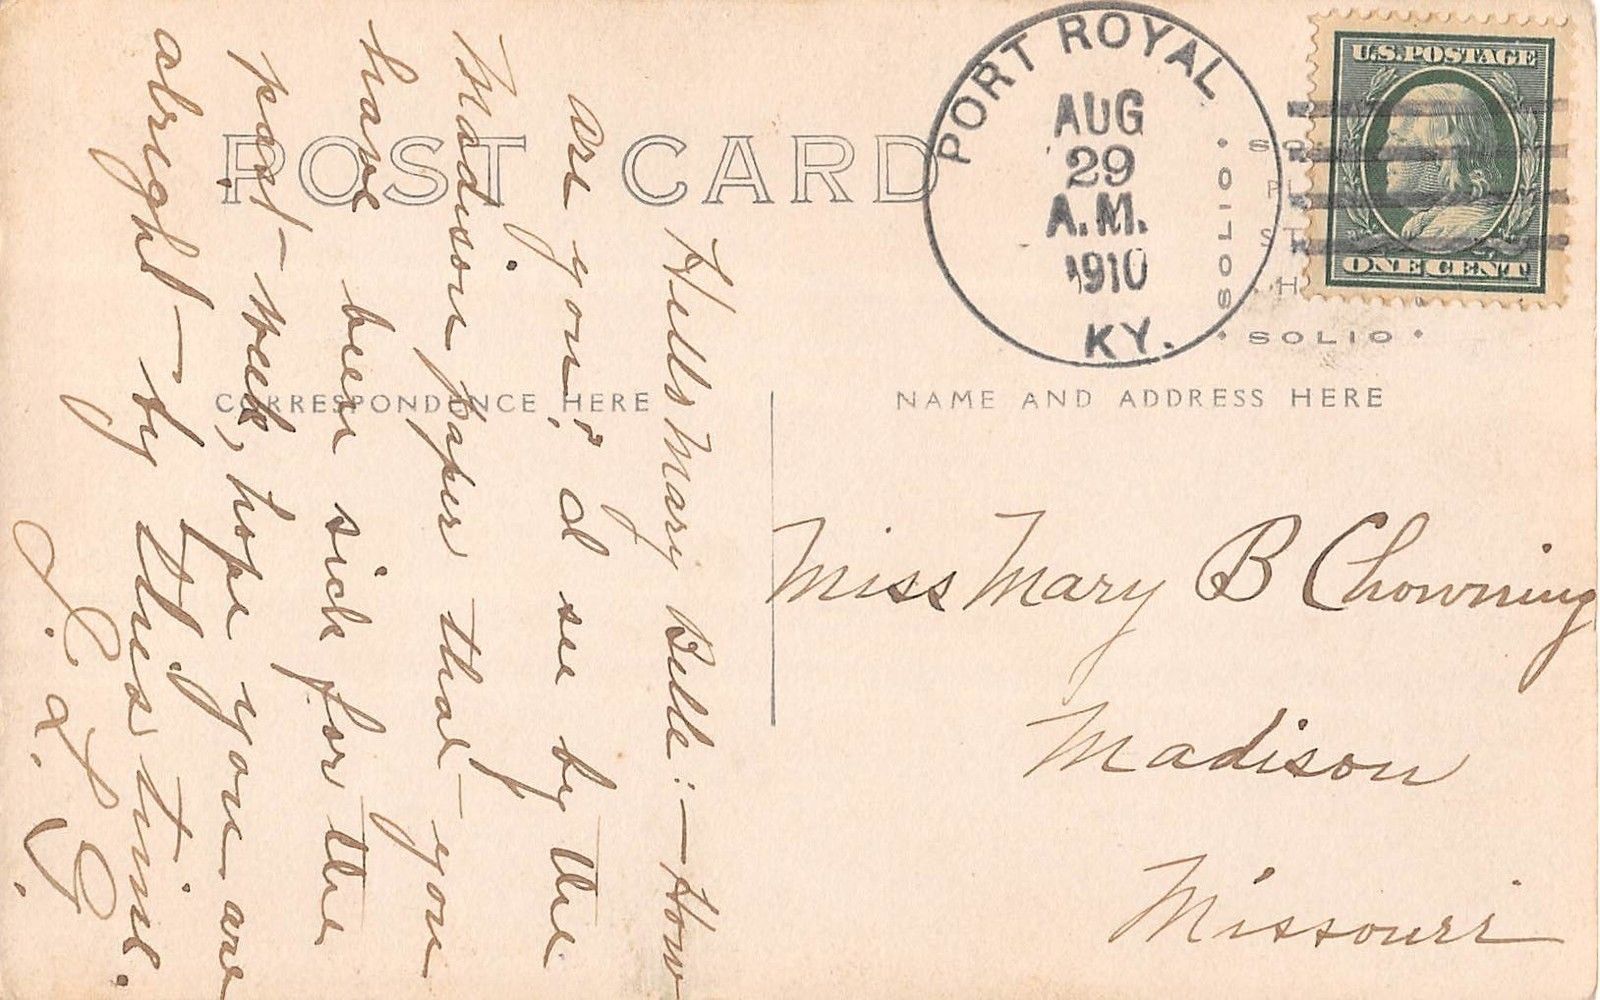 POST CARD
CORRESPONDENCE HERE
NAME AND ADDRESS HERE
PORT ROYAL
AUG
29
A.M.
1910
KY.
U.S. POSTAGE
ONE CENT
SOLIO
SOLIO
Hello Mary Belle:— How
are you? I see by the
Madison paper that you
have been sick for the
past week, hope you are
alright by this time.
Miss Mary B Chowning
Madison
Missouri